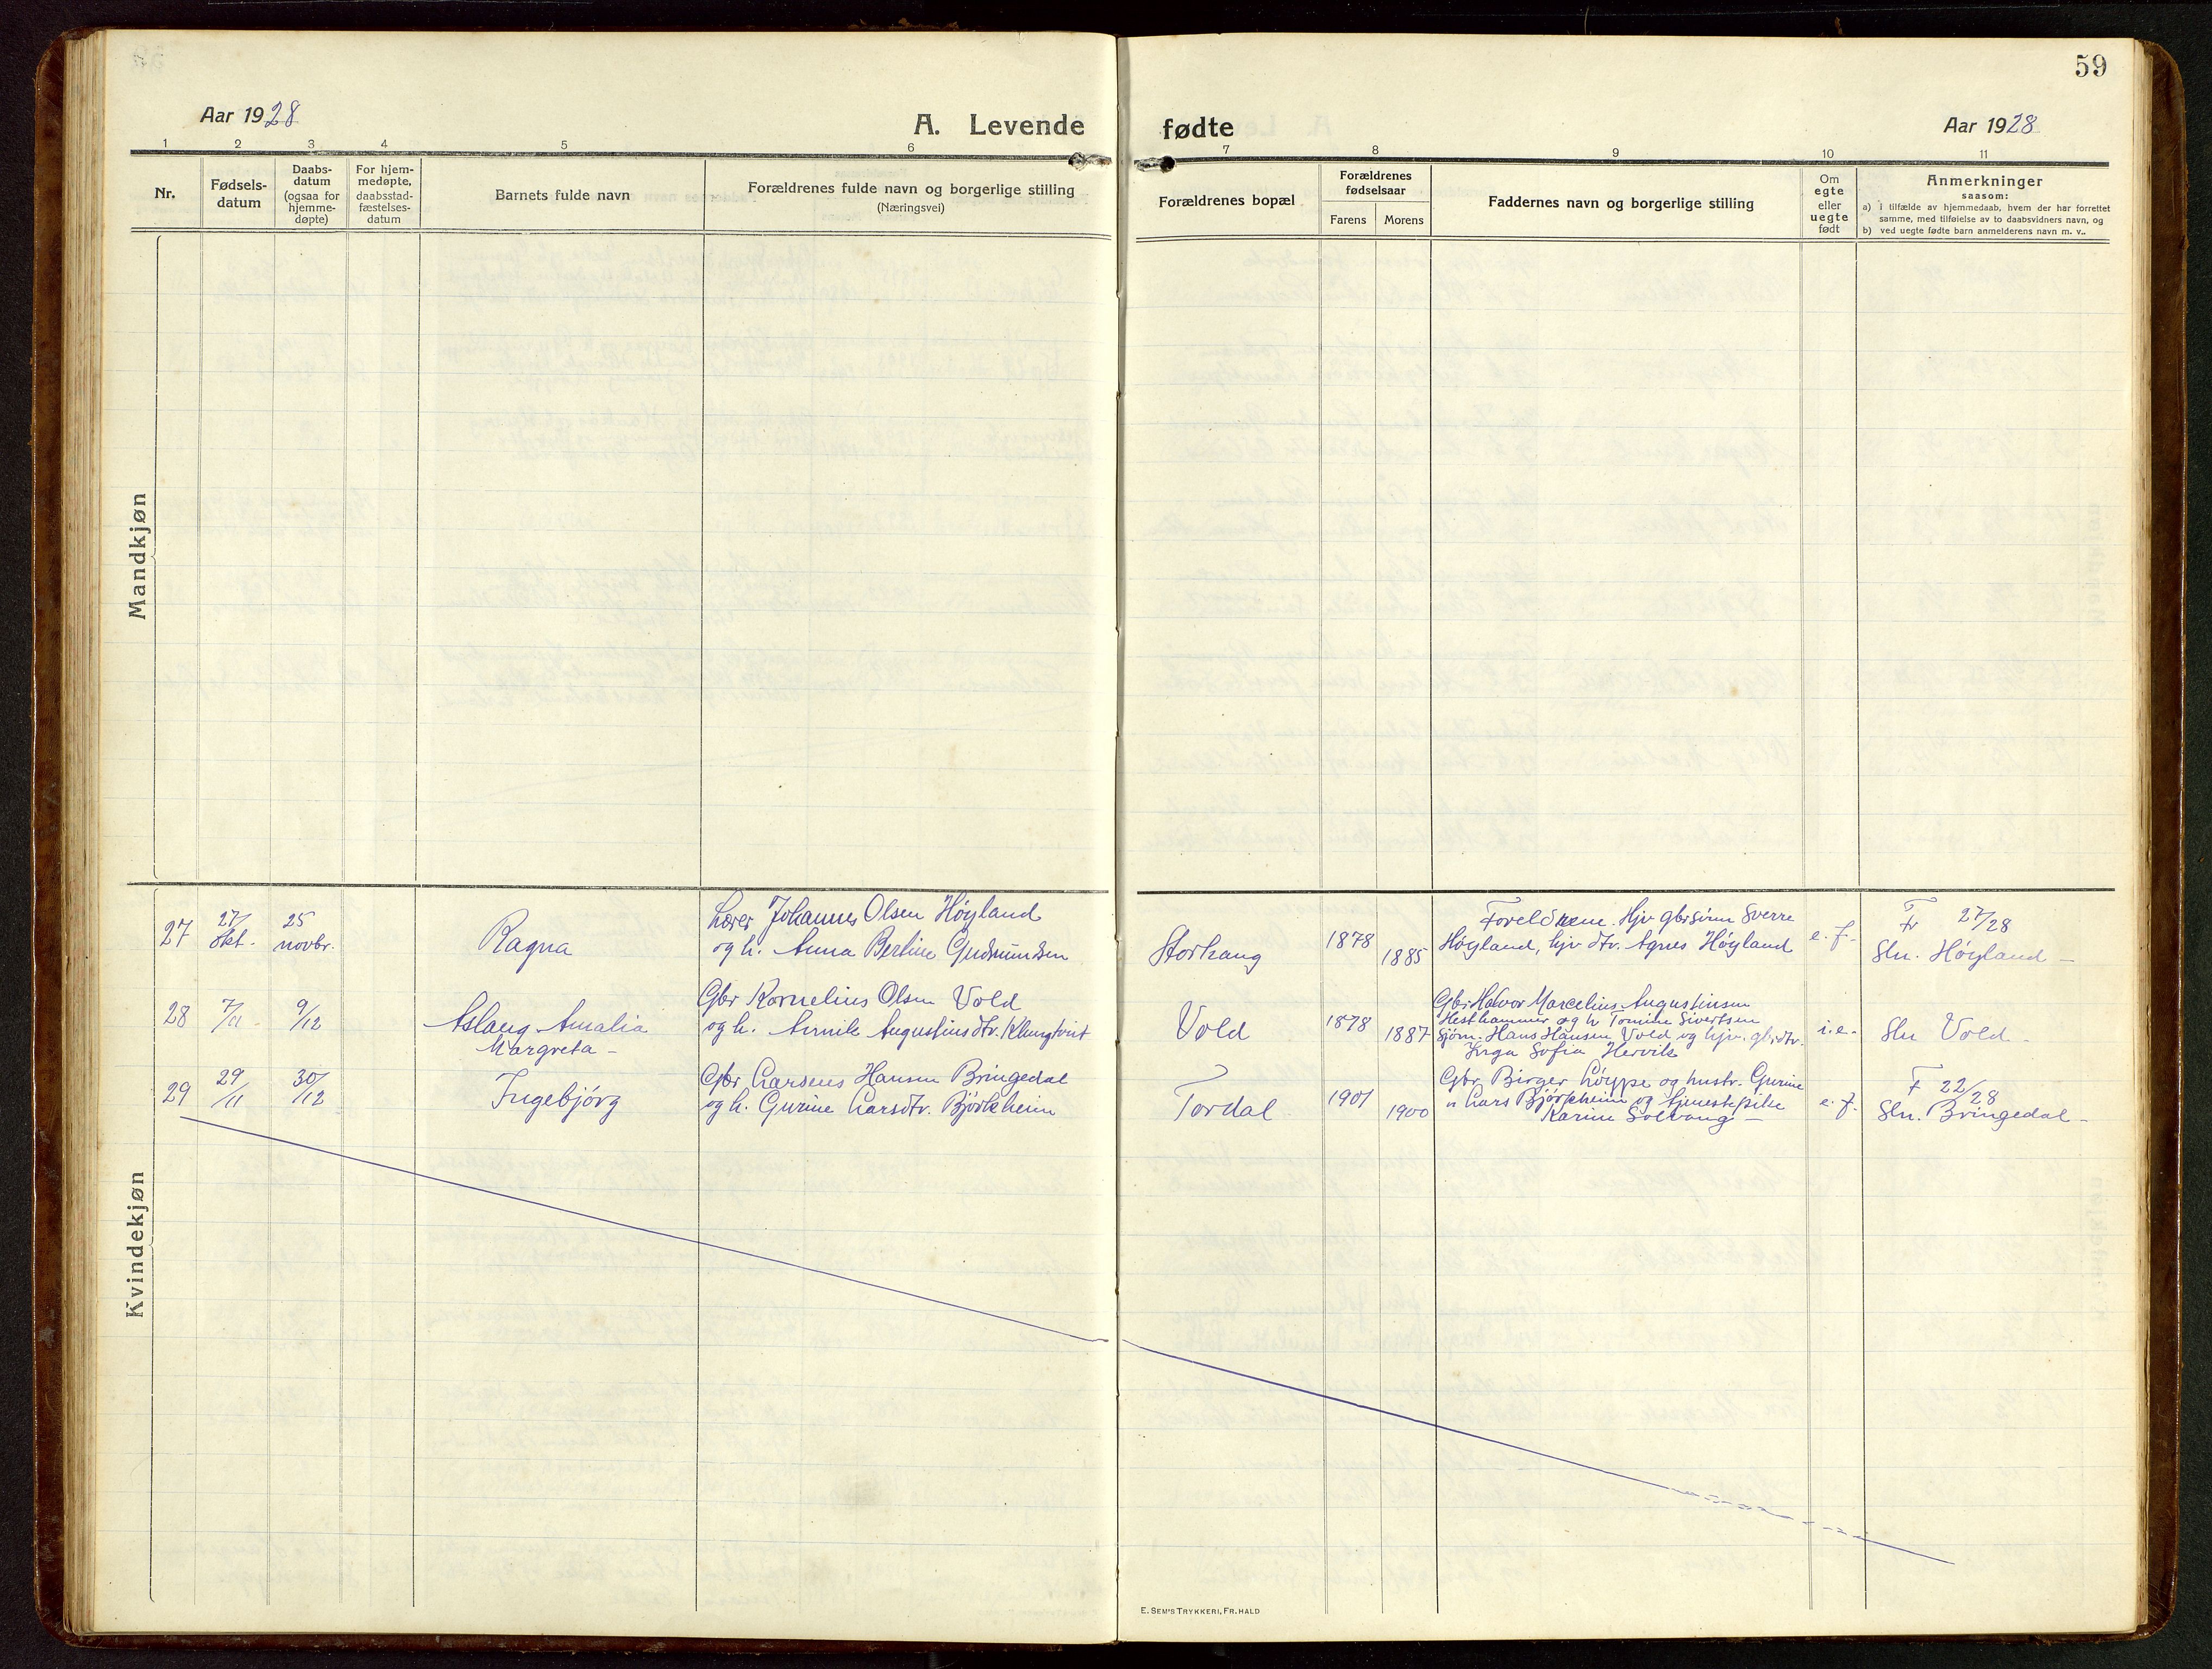 59
Aar 1928
A. Levende
fødte
Aar 1928
1 2 3 4 5 6 7 8 9 10 11
Nr.
Fødsels-
datum
Daabs-
datum
(ogsaa for
hjemme-
døpte)
For hjem-
medøpte,
daabsstad-
fæstelses-
datum
Barnets fulde navn
Forældrenes fulde navn og borgerlige stilling
(Næringsvei)
Forældrenes bopæl
Forældrenes
fødselsaar
Farens Morens
Faddernes navn og borgerlige stilling
Om
egte
eller
uegte
født
Anmerkninger
saasom:
a) i tilfælde av hjemmedaab, hvem der har forrettet
samme, med tilføielse av to daabsvidners navn, og
b) ved uegte fødte barn anmelderens navn m. v..
Mandkjøn
Kvindekjøn
27
27/
okt.
25
novbr.
Ragna
Lærer Johannes Olsen Høyland
og h. Anna Bertine Gudmundsen
Storhaug
1878
1885
Foreldrene. Hjv. gbrsønn Sverre
Høyland, hjv dtr. Agnes Høyland
e. f.
F 27/28
fr
Sln. Høyland
28
7/11
9/12
Aslaug Amalia
Margreta
Gbr Kornelius Olsen Vold
og h. Augustinsdtr. Klungtvit
Vold
1878
1887
Gbr Halvor Marcelius Augustinsen
Hesthammer og h Tomine Sivertsen
Sjøm. Hans Hansen Vold og hjv. gb.dtr.
Inga Sofia Hervik
i.e.
Sln Vold
29
29/11
30/12
Ingebjørg
Gbr Larsens Hansen Bringedal
og h. Gurine Larsdtr. Bjørkheim
Tordal
1901
1900
Gbr. Birger Løyppe og hustr. Gurine
Lars Bjørkheim og tjenestepike
Karine Solvang
e. f.
F 22/28
Sln. Bringedal
E. SEM'S TRYKKERI, FR. HALD